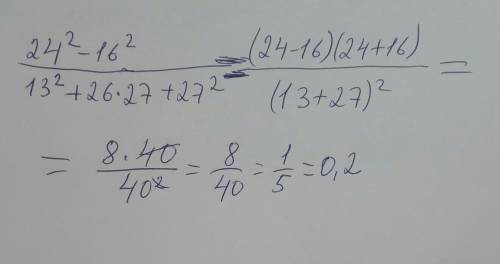 24² - 16² / 13² + 26·27 + 27² = (24-16)(24+16) / (13+27)² =
= 8·40 / 40² = 8/40 = 1/5 = 0,2